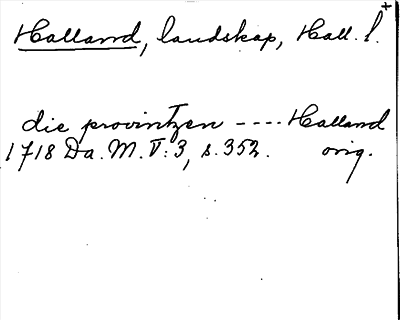 Halland, landskap, Hall. l. +
die provintzen ---- Halland
1718 Da. M. V:3, s. 352. orig.